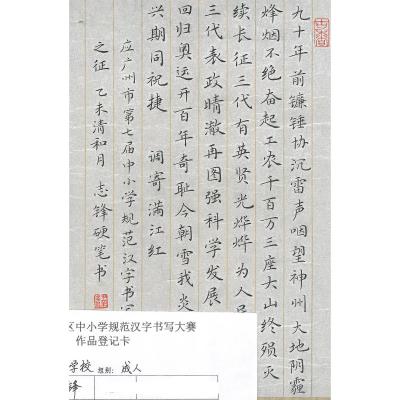 九十年前镰锤协沉雷声咽望神州大地阴霾
烽烟不绝奋起工农千百万三座大山终殒灭
续长征三代有英贤光烨烨为人民
三代表政晴澈再图强科学发展
回归奥运开百年奇耻今朝雪我炎
兴期同祝捷 调寄满江红
应广州市第七届中小学规范汉字书写
之征 乙未清和月 志锋硬笔书
区中小学规范汉字书写大赛
作品登记卡
学校 组别: 成人
锋